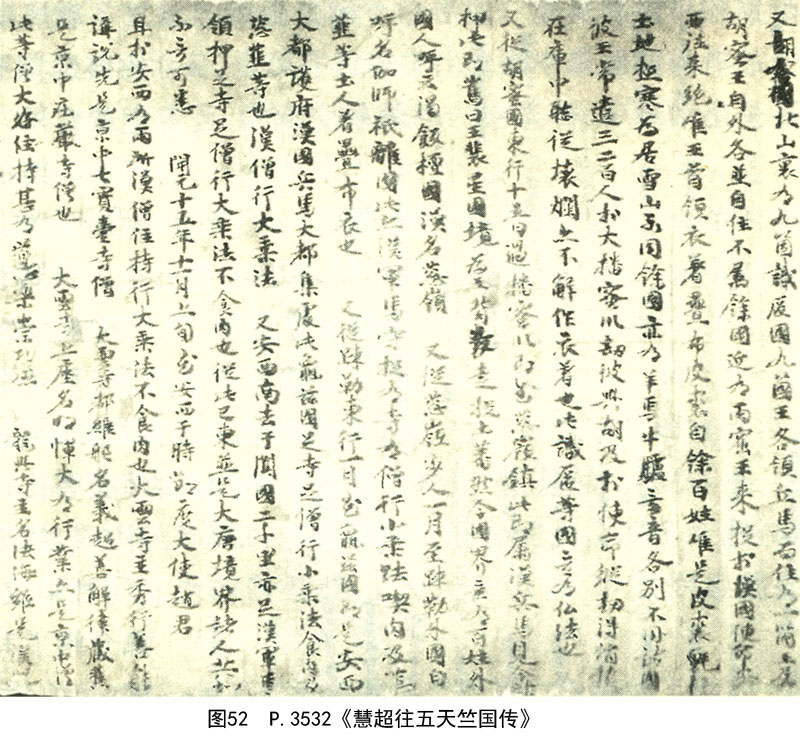 又胡蜜國北山裏有九箇識匿國九箇王各領兵馬而住有一箇王属
胡蜜王自外各並自住不属餘國近有兩窟王来投於漢國使命安
西往来絶唯王首領衣著疊布皮裘自餘百姓唯是皮裘氈
土地極寒為居雪山不同餘國亦有羊馬牛驢言音各別不同諸國
彼王常遣三二百人於大播蜜川劫彼興胡及於使命縱劫得絹積
在庫中聽従壞爛亦不解作衣著也此識匿等國无有仏法也
又従胡蜜國東行十五日過播蜜川即至葱嶺鎮此即属漢兵馬見今鎮
押此即舊日王裴星國境為王背叛走投土蕃然今國界无有百姓外
國人呼云渴飯檀國漢名葱嶺 又従葱嶺步入一月至疎勒外國自
呼名伽師祇離國此亦漢軍馬守捉有寺有僧行小乘法喫肉及葱
韮等土人著疊布衣也 又従疎勒東行一月至龜茲國即是安西
大都護府漢國兵馬大都集處此龜茲國足寺足僧行小乘法食肉及
葱韮等也漢僧行大乘法 又安西南去于闐國二千里亦足漢軍馬
領押足寺足僧行大乘法不食肉也従此已東並是大唐境界諸人共知
不言可悉 開元十五年十一月上旬至安西于時節度大使趙君
且於安西有兩所漢僧住持行大乘法不食肉也大雲寺主秀行善能
講說先是京中七寶臺寺僧 大雲寺都維那名義超善解律藏舊
是京中庄嚴寺僧也 大雲寺上座名明惲大有行業亦是京中僧
此等僧大好住持甚有道心樂崇功德 龍興寺主名法海雖是漢兒
图52 P.3532《慧超往五天竺国传》